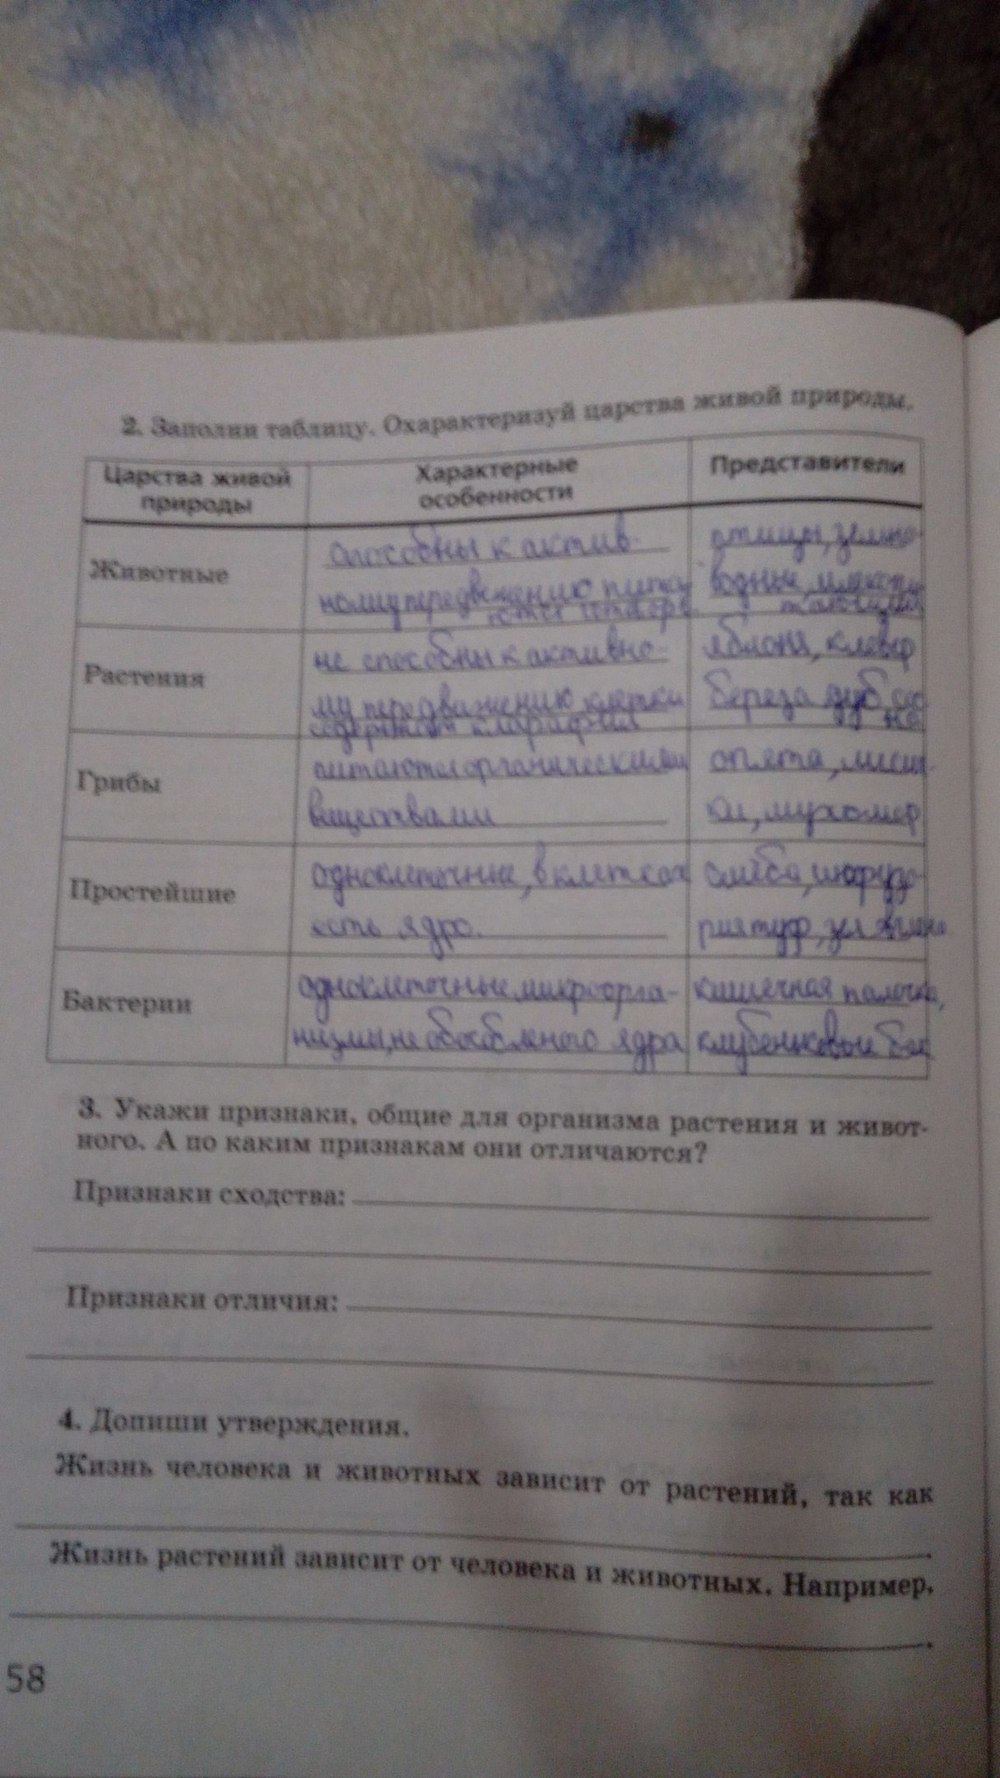 2. Заполни таблицу. Охарактеризуй царства живой природы.
Царства живой природы
Характерные особенности
Представители
Животные
способны к актив-
ному передвижению
птицы, земно-
водные, млекопи
тающие
Растения
не способны к активно-
му передвижению клетки
содержат
яблоня, клевер
береза дуб, сос
на
Грибы
питаются органическими
веществами
опята, лисич
ки, мухомор
Простейшие
одноклеточные, в клетках
есть ядро.
амёба, инфузо-
рия туф, эвглена
Бактерии
одноклеточные микроорга-
низмы, не обособленого ядра
кишечная палочка,
клубеньковые бак
3. Укажи признаки, общие для организма растения и живот-
ного. А по каким признакам они отличаются?
Признаки сходства:
Признаки отличия:
4. Допиши утверждения.
Жизнь человека и животных зависит от растений, так как
.
Жизнь растений зависит от человека и животных. Например,
.
58